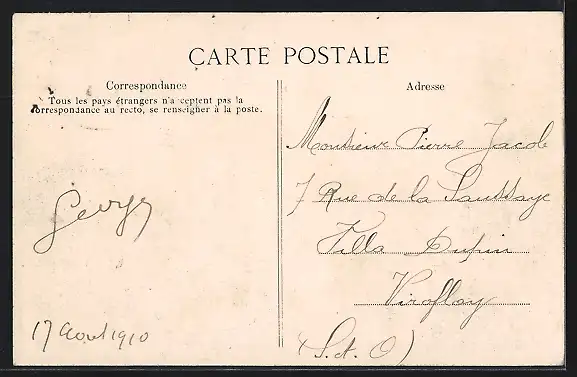 CARTE POSTALE
Correspondance
Tous les pays étrangers n'acceptent pas la
correspondance au recto, se renseigner à la poste.
Georges
17 Aout 1910
Adresse
Monsieur Pierre Jacob
7 Rue de la Saussaye
Villa Dupin
Viroflay
(S. et. O)